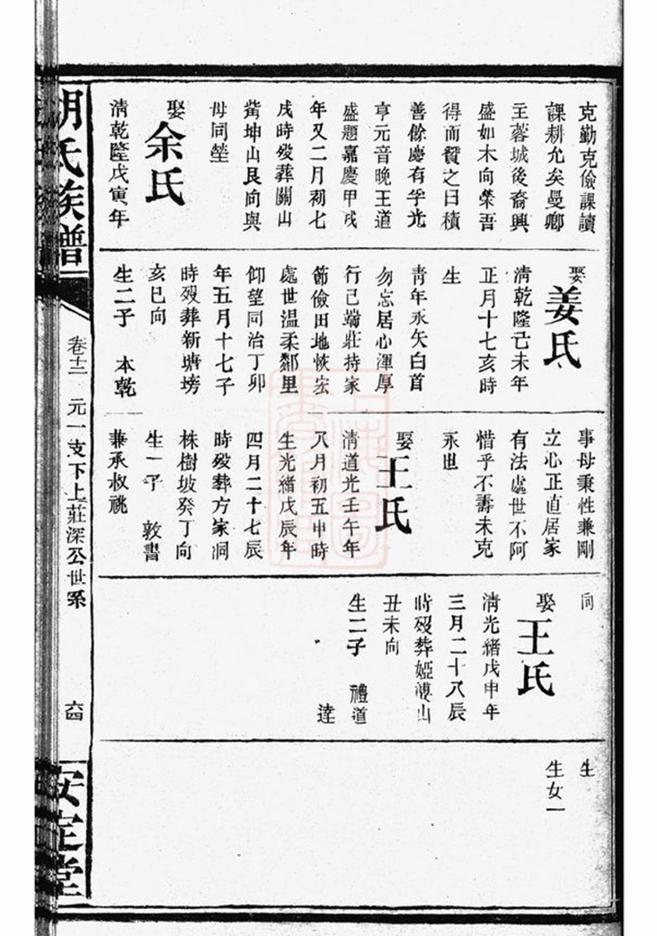 克勤克儉課讀
課耕允矣曼卿
主蓉城後裔興
盛如木向榮吾
得而贊之曰積
善餘慶有孚光
亨元音晚王道
盛題嘉慶甲戌
年又二月初七
戌時歿葬關山
觜坤山艮向與
母同塋
娶余氏
清乾隆戊寅年
娶姜氏
清乾隆己未年
正月十七亥時
生
青年永矢白首
勿忘居心渾厚
行己端莊持家
節儉田地恢宏
處世温柔鄰里
仰望同治丁卯
年五月十七子
時歿葬新塘塝
亥巳向
生二子 本乾
事母秉性兼剛
立心正直居家
有法處世不阿
惜乎不壽未克
永世
娶王氏
清道光壬午年
八月初五申時
生光緒戊辰年
四月二十七辰
時歿葬方家洞
株樹坡癸丁向
生一子 敦書
兼承叔祧
向
娶王氏
清光緒戊申年
三月二十八辰
時歿葬婭漊山
丑未向
生二子 禮道
達
生
生女一
胡氏族譜
卷十二 元一支下上莊深公世系
六四
安定堂